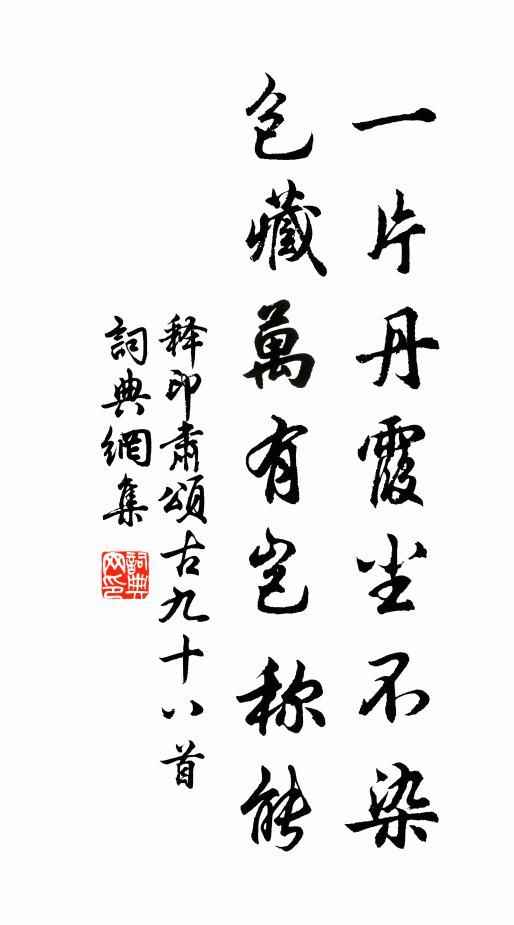 一片丹霞尘不染
包藏萬有岂称能
释印肃頌古九十八首
詞典網集
詞典
网印